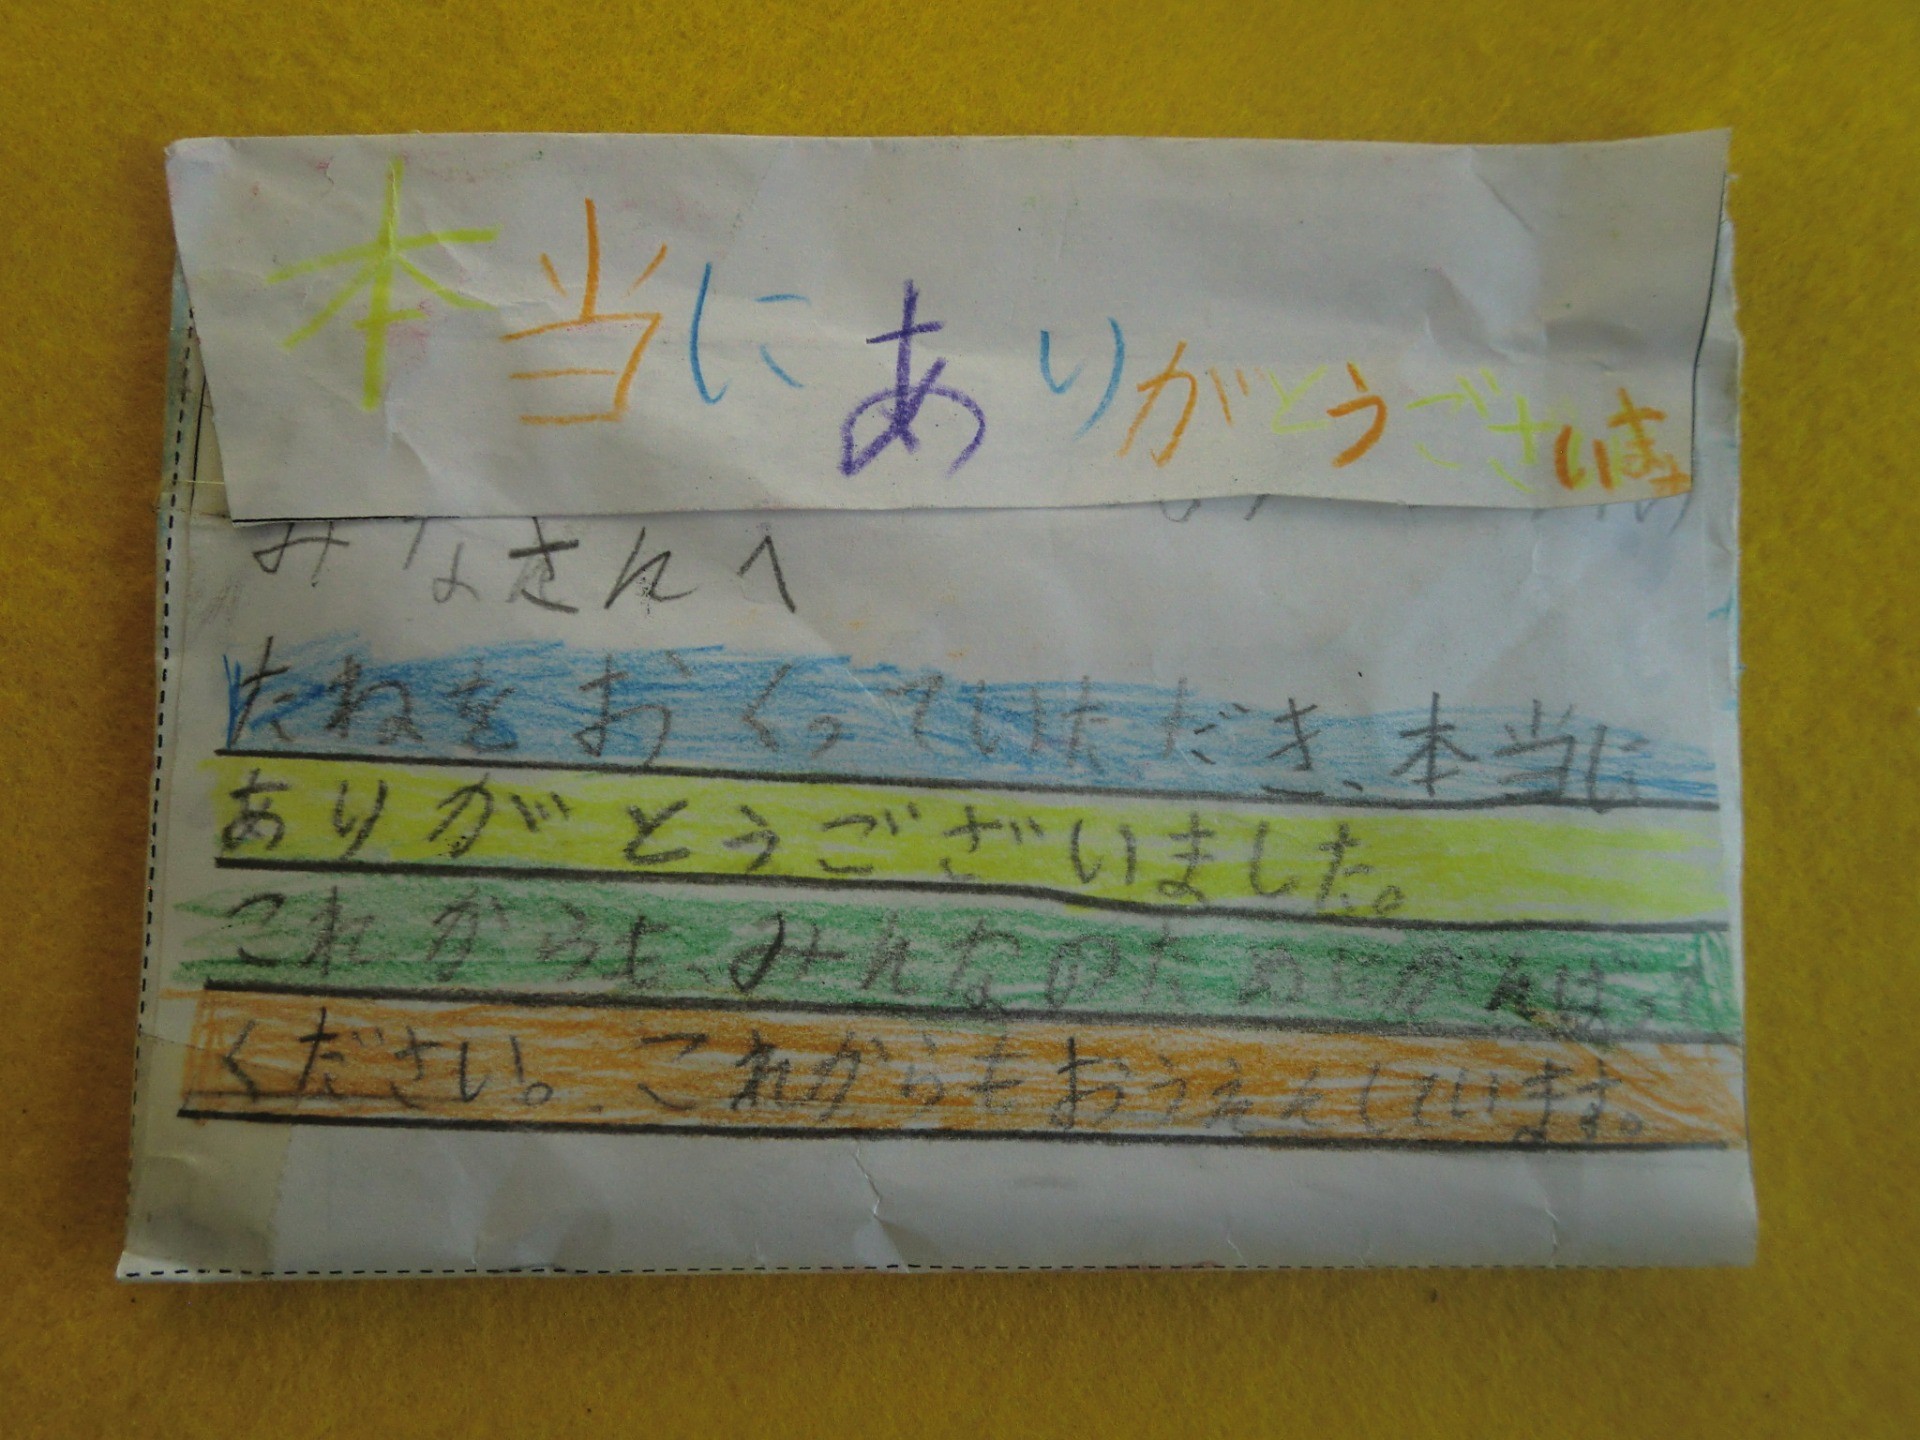 本当にありがとうございます
みなさんへ
たねをおくっていただき、本当に
ありがとうございました。
これからも、みんなのためにがんばって
ください。これからもおうえんしています。